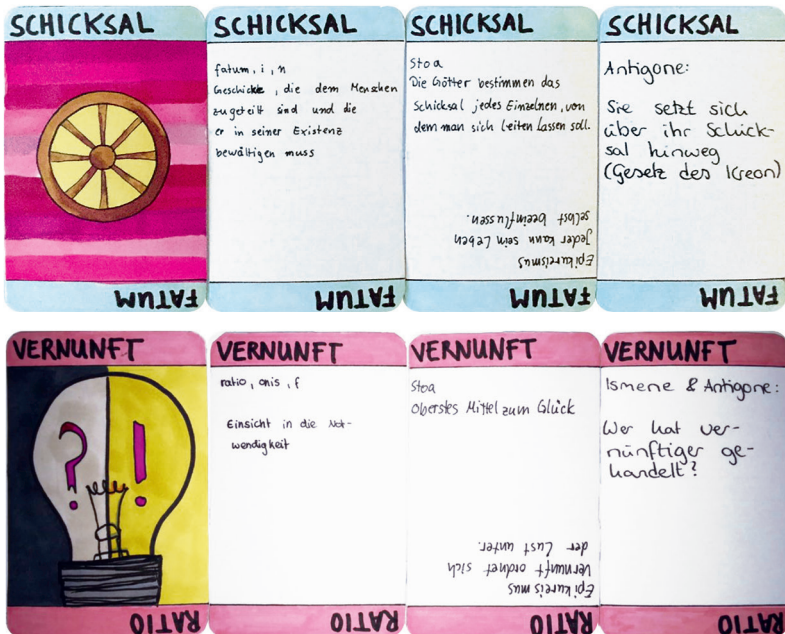 SCHICKSAL
FATUM
SCHICKSAL
fatum, i, n
Geschicke, die dem Menschen
zugeteilt sind und die
er in seiner Existenz
bewältigen muss
FATUM
SCHICKSAL
Stoa
Die Götter bestimmen das
Schicksal jedes Einzelnen, von
dem man sich leiten lassen soll.
Epikureismus
Jeder kann sein Leben
selbst beeinflussen.
FATUM
SCHICKSAL
Antigone:
Sie setzt sich
über ihr Schick-
sal hinweg
(Gesetz des Kreon)
FATUM
VERNUNFT
? !
RATIO
VERNUNFT
ratio, onis, f
Einsicht in die Not-
wendigkeit
RATIO
VERNUNFT
Stoa
Oberstes Mittel zum Glück
Epikureismus
Vernunft ordnet sich
der Lust unter.
RATIO
VERNUNFT
Ismene & Antigone:
Wer hat ver-
nünftiger ge-
handelt?
RATIO